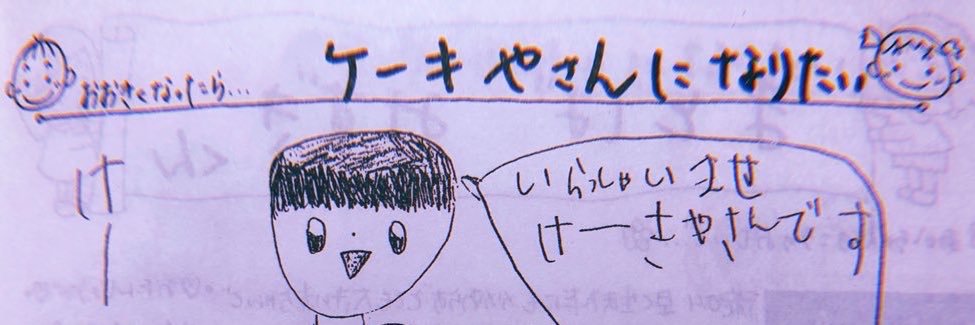 おおきくなったら… ケーキやさんになりたい
けー
いらっしゃいませ
けーきやさんです